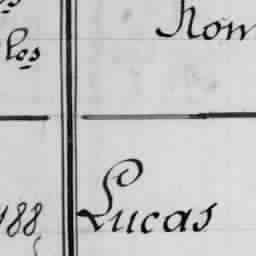 los
Nom
188
Lucas